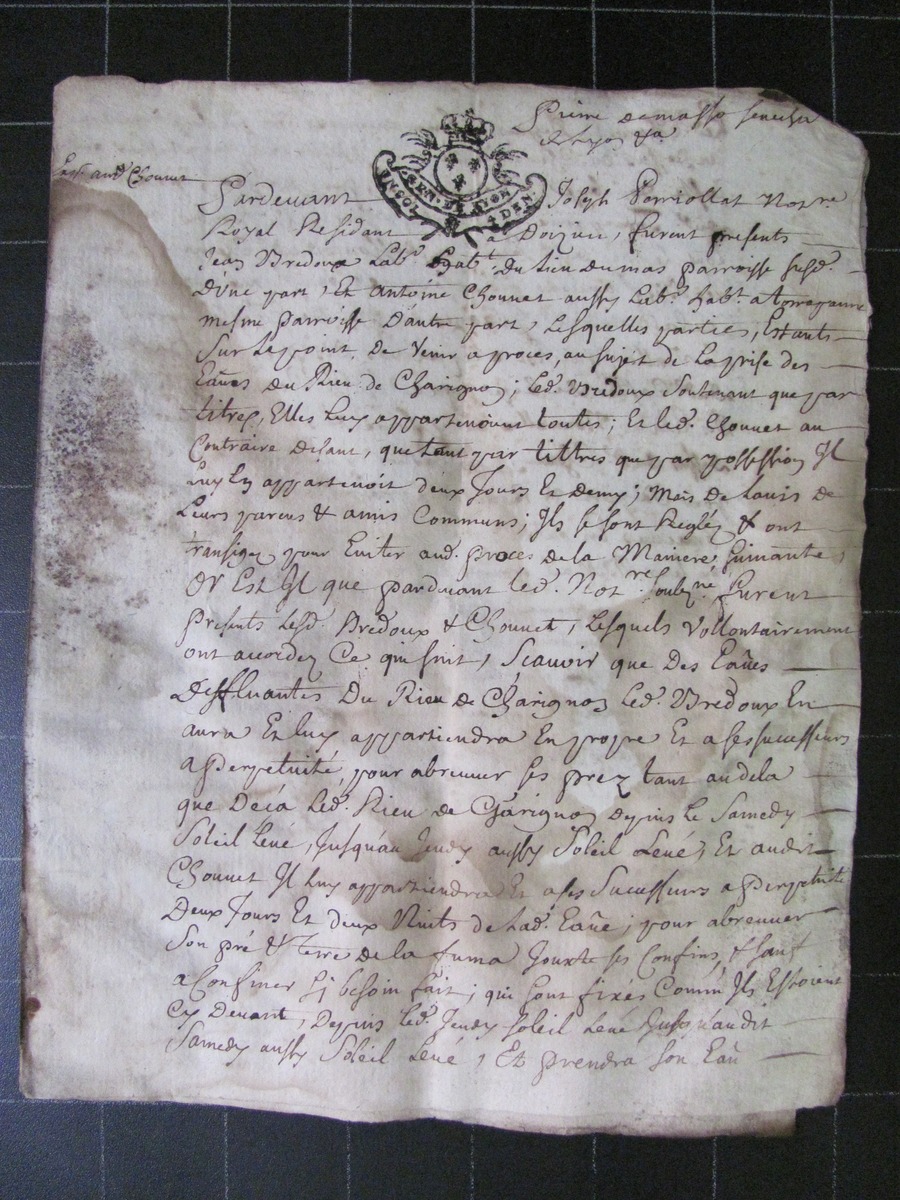 Pierre demasso senechal
de Lyon
Ext. aud. Chonnet
Pardevant Joseph Porriollat Notre
Royal Residant a Doizieu, furent presents
Jean Bredoux Labr. habt. du lieu dumas parroisse susd.
D'une part, Et antoine Chonnet aussy Labr. habt. a
mesme parroisse D'autre part, Lesquelles parties, Estants
Sur Le point De Venir a proces, au sujet de La prise des
Eaües du Rieu de Charignon; led. Bredoux Soutenant que par
titres, Elles luy appartenoient toutes; Et led. Chonnet au
Contraire disant, que tant par tittres que par possession Il
luy En appartenoit deux Jours Et Demy; Mais De lavis de
Leurs parens & amis Communs; Ils se sont Reglez & ont
transigez pour Eviter aud. proces de la Maniere suivante,
Or Est Il que pardevant led. Notre. soubzné. furent
Presents Lesd. Bredoux & Chonnet, Lesquels Vollontairement
ont accordez Ce qui suit, Scavoir que Des Eaües
Deffluantes Du Rieu de Charignon led. Bredoux En
aura Et luy appartiendra En propre Et a ses successeurs
a perpetuité, pour abreuver ses prez tant audela
que Deça led. Rieu de Charignon Depuis le Samedy
Soleil Levé, Jusqu'au Jeudy aussy Soleil Levé, Et audit
Chonnet Il luy appartiendra Et a ses Successeurs a perpetuité
Deux Jours Et deux Nuits de lad. Eaüe; pour abreuver
Son pré & terre de la fuma Jouxte ses Confins, & sauf
a Confiner si besoin fait; qui sont fixés Comm' Ils Estoient
Cy Devant, Depuis led. Jeudy soleil Levé Jusqu'audit
Samedy aussy Soleil Levé, Et prendra son Eaü